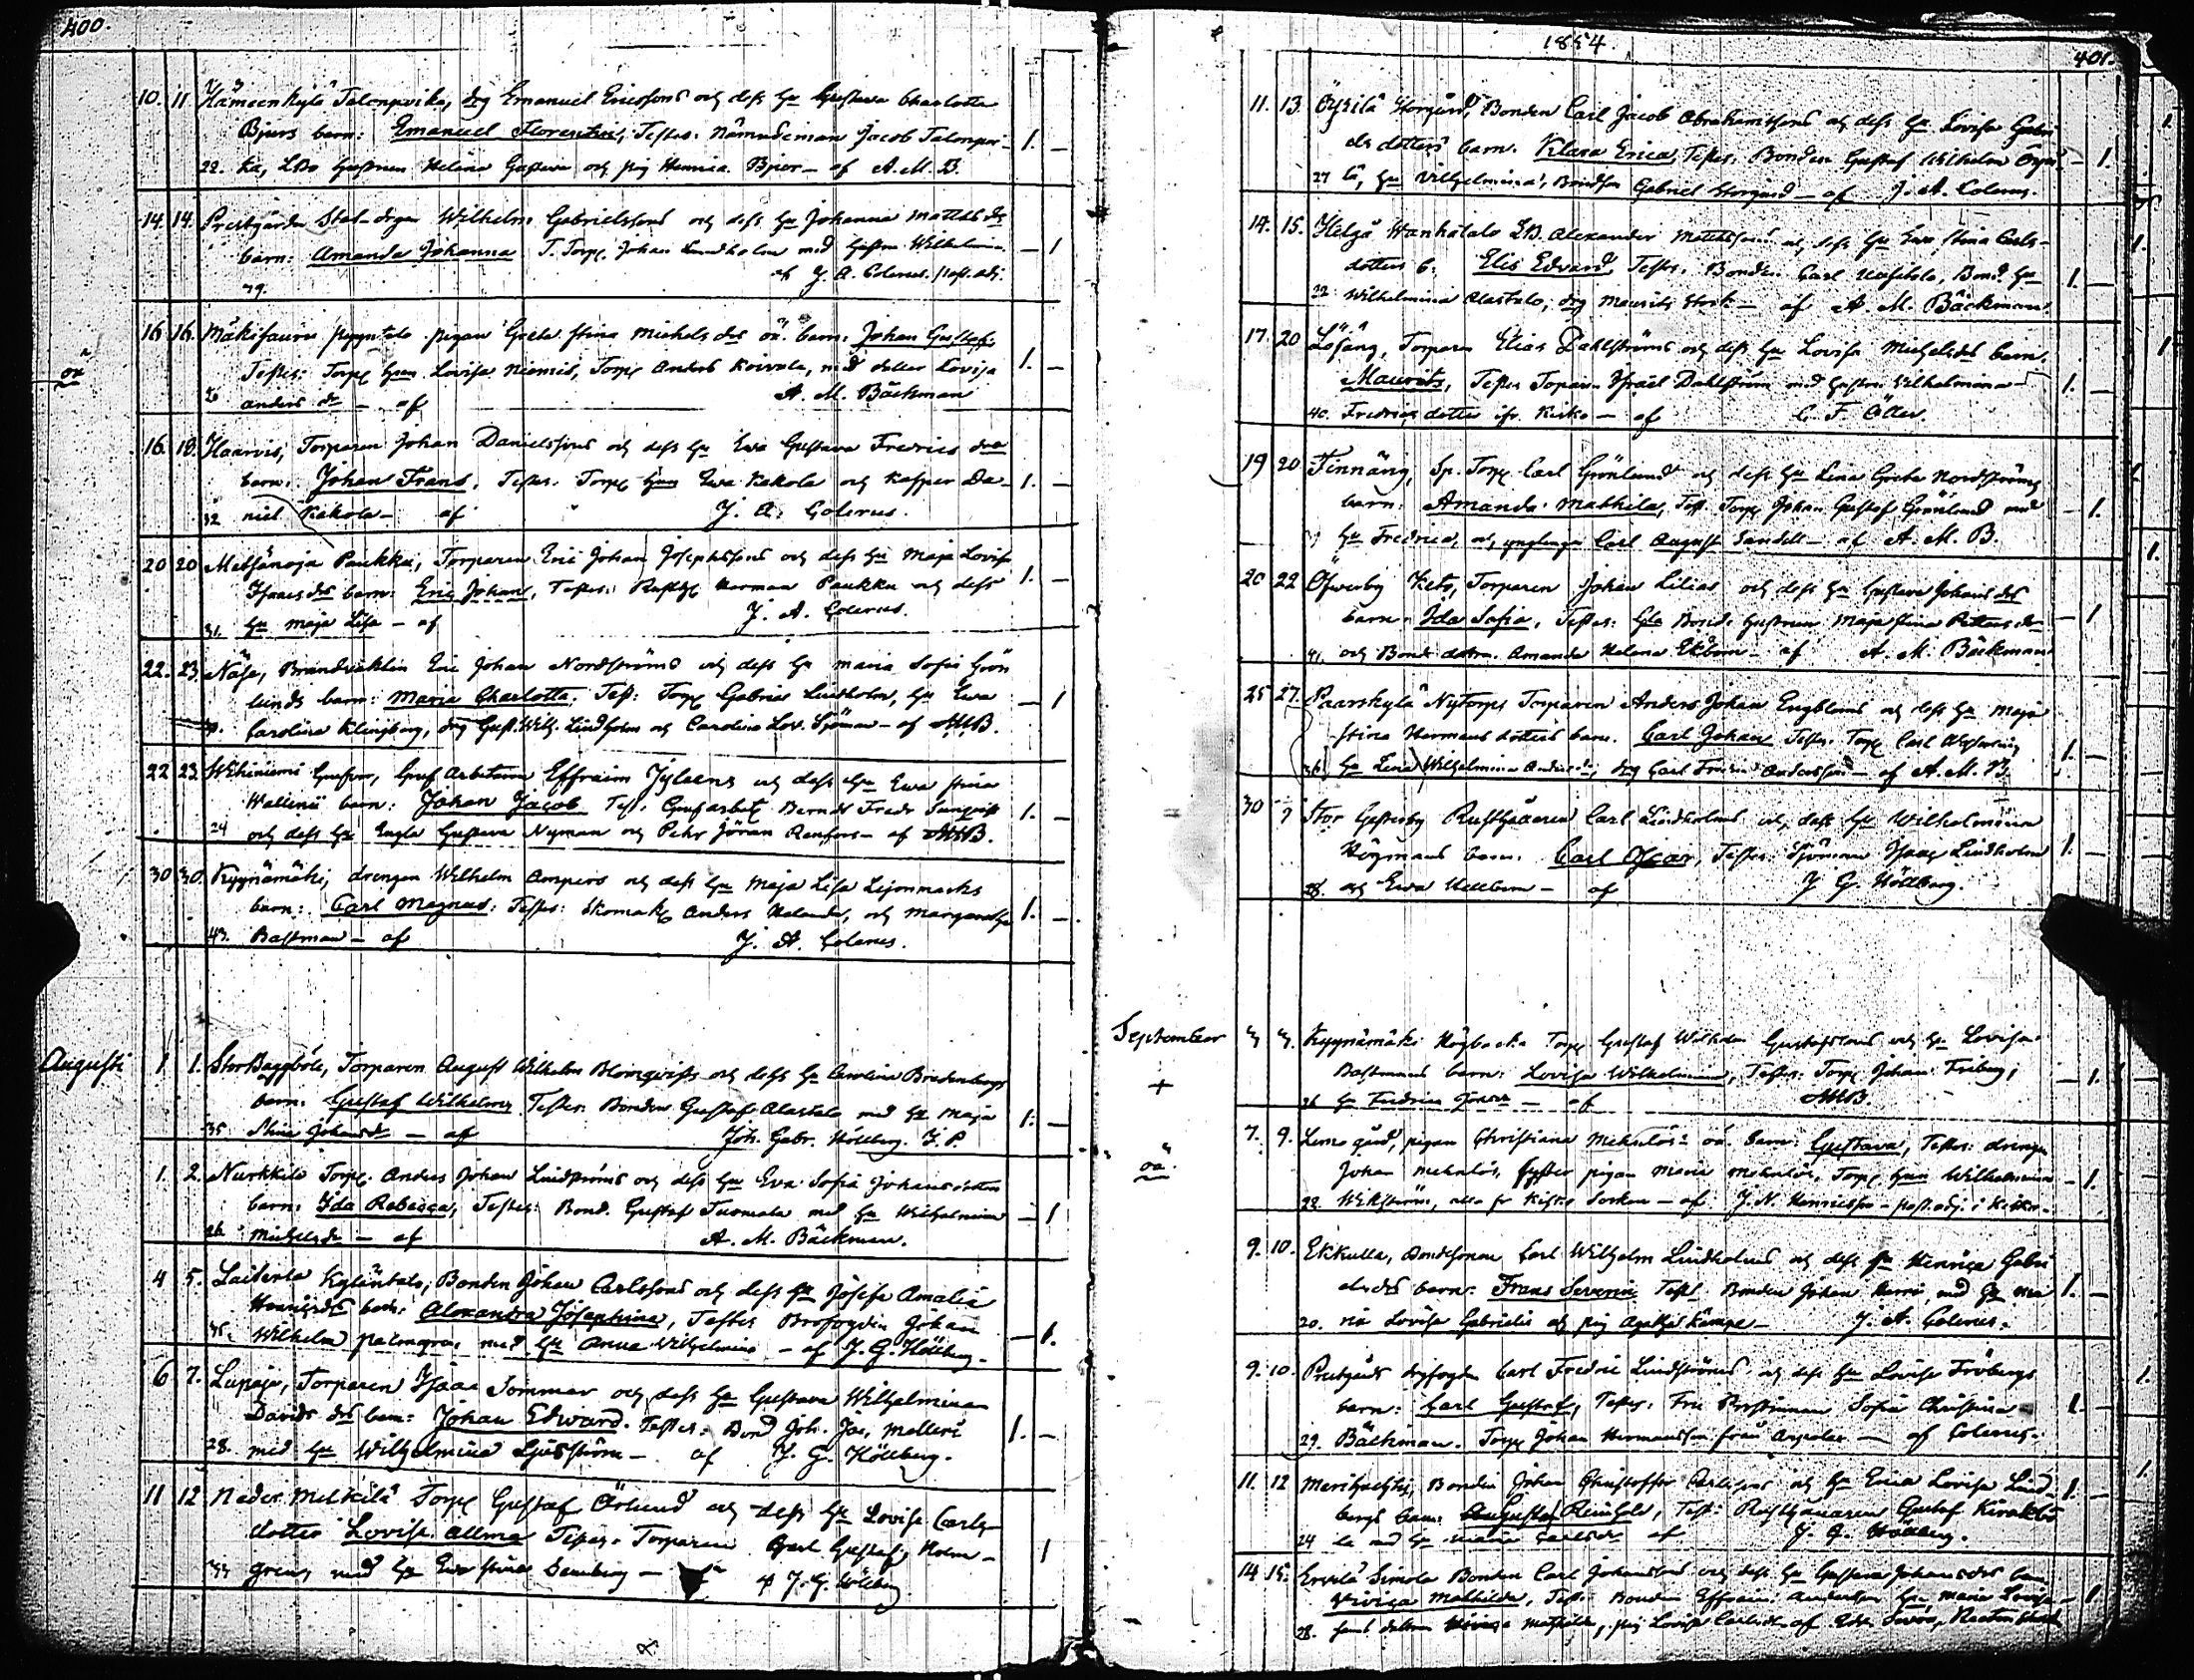 400.
10. 11 Hämeenkylä Talonpoika, drg Emanuel Ericssons och dess Hu Gustava Charlotta
Bjurs barn: Emanuel Florentin, Testes: Nämndeman Jacob Talonpoi- 1. -
22. ka, Hustrun Helena Gustava och pig Henrica Bjur - af A. M. B.
14. 14. Prestgården Stat-drgn Wilhelm Gabrielssons och dess Hu Johanna Mattsdrs
barn: Amanda Johanna T. Torp. Johan Lindholm med hustru Wilhelmina - 1
29. af J. A. Colerus. past. adj.
16 16. pigan Greta Stina Michelsdrs oä. barn: Johan Gustaf,
oä Testes: Torp Hun Lovisa Niemis, Torp Anders Koivula, med dotter Lovisa 1. -
26 Anders dr - af A. M. Bäckman
16. 18. Haarvis, Torparen Johan Danielssons och dess Hu Ewa Gustava Fredrics dra
barn: Johan Frans, Testes. Torp Hun Ewa Kakola och Kasper Da- 1. -
32 niel Kakola - af J. A. Colerus.
20 20 Metsänoja Paukku, Torparen Eric Johan Josephssons och dess Hu Maja Lovisa
Isaacsdrs barn: Eric Johan, Testes: Rusth. Herman Paukku och dess 1. -
31. Hu Maja Lisa - af J. A. Colerus.
22. 23. Näse, Eric Johan Nordströms och dess Hu Maria Sofia Grön
lunds barn: Maria Charlotta. Test: Torp Gabriel Lindholm, Hu Ewa - 1
Carolina Klingberg, drg Gust. Wilh. Lindholm och Carolina Lov. Sjöman - af AMB.
22 23. Wihiniemi Grufvor, Gruf Arbetaren Effraim Jylaens och dess Hu Ewa Stina
Wallenii barn: Johan Jacob Test. Grufarbet. Berndt Fredr Sunqvist 1. -
24 och dess Hu Engla Gustava Nyman och Pehr Jöran Renfors - af AMB.
30 30. Kyynämäki, drengen Wilhelm Ampers och dess Hu Maja Lisa Lejonmarks
barn: Carl Magnus. Testes: Skomak Anders Helander, och Margaretha 1. -
43. Bastman - af J. A. Colerus.
Augusti 1 1. Stor Baggböle, Torparen August Wilhelm Blomqvists och dess Hu Carolina Bredenbergs
barn. Gustaf Wilhelm Testes. Bonden Gustaf Alastalo med Hu Maja 1. -
35 Stina Johansdr - af Joh. Gabr. Höllberg. V. P
1. 2. Nurkkila Torp. Anders Johan Lindströms och dess Hu Eva Sofia Johansdotters
barn: Ida Rebecca, Testes: Bond. Gustaf Tuomola med Hu Wilhelmina - 1
26. Michelsdr - af A. M. Bäckman.
4 5. Laiterla Kyläntalo, Bonden Johan Carlssons och dess Hu Josefa Amalia
Henricsdrs barn: Alexandra Josephina, Testes Brofogden Johan
35. Wilhelm Palmgren med Hu Anna Wilhelmina - af J. G. Höllberg - 1.
6 7. Lupaja, Torparen Isaac Sommar och dess Hu Gustava Wilhelmina
Davids drs barn: Johan Edward. Testes. Bond Joh. Jac. Melleri 1. -
28. med Hu Wilhelmina Ljusström - af J. G. Höllberg.
11 12 Neder Melkilä Torp Gustaf Örlund och dess Hu Lovisa Carls-
dotter Lovisa Allma Testes. Torparen Carl Gustaf Holm- 1
33 gren, med Hu Ewa Stina Semberg - af J. G. Höllberg
1854.
401.
11. 13. Öysilä Storgård, Bonden Carl Jacob Abrahamssons och dess Hu Lovisa Gabri
els dotters barn. Klara Erica, Testes. Bonden Gustaf Wilhelm Öysi- - 1.
27 lä, Hu Vilhelmina, Bondson Gabriel Storgård - af J. A. Colerus.
14. 15. Helgå Wanhatalo Alexander Mattssons och dess Hu Ewa Stina Carls-
dotters b. Elis Edvard, Testes. Bonden Carl Uusitalo, Bond. Hu 1. -
22 Wilhelmina Alastalo, drg Maurits Stork - af A. M. Bäckman.
17. 20 Lösäng, Torparen Elias Dahlströms och dess Hu Lovisa Michelsdrs barn.
Maurits, Testes Torparen Israel Dahlström med hustru Wilhelmina 1. -
40. Fredrics dotter ifr. Kisko - af C. F. Öller.
19 20 Finnäng, Sp. Torp Carl Grönlund och dess Hu Lena Greta Nordströms
barn: Amanda Mathilda, Test. Torp Johan Gustaf Grönlund med - 1.
Hu Fredrica, och ynglingen Carl August Sandell - af A. M. B.
20 22 Öfwerby Keto, Torparen Johan Lilias och dess Hu Gustava Johans drs
barn. Ida Sofia, Testes: Bond. hustrun Maja Stina Petters dr - 1
41. och Bond. dottr. Amanda Helena Ekbom - af A. M. Bäckman
25 27. Paarskylä Nytorp Torparen Anders Johan Engbloms och dess Hu Maja
Stina Hermans dotters barn. Carl Johan Testes. Torp Carl
36. Hu Lena Wilhelmina Anders dr, drg Carl Fredric Andersson - af A. M. B. 1. -
30 Stor Gestesby Rusthållaren Carl Lindholms och dess Hu Wilhelmina
Högmans barn. Carl Oscar, Testes: Sjöman Isaac Lindholm 1. -
28. och Ewa Hellbom - af J. G. Höllberg.
September 3 3. Kyynämäki Högbacka Torp Gustaf Wilhelm Gustafssons och Hu Lovisa
Bastmans barn: Lovisa Wilhelmina, Testes. Torp Johan Friberg, - 1.
+
26 Hu Fredrica - af AMB.
7. 9. Lemo gård, pigan Christiana Mehnlös oä. barn: Gustava, Testes: drengen
oä Johan Mehnlös, syster pigan Maria Mehnlös, Torp Hun Wilhelmina - 1.
22. Wikström, alla fr Kisko Socken - af J. N. Henricsson past. adj. i Kisko.
9. 10. Ekkulla, Bondsonen Carl Wilhelm Lindholms och dess Hu Henrica Gabri
elsdrs barn: Frans Severin Test. Bonden Johan Harri, med Hu Ma 1. -
20. ria Lovisa Gabrielsdr och pig Agatha Kämpe - J. A. Colerus.
9. 10. Prestgårds drgfogden Carl Fredric Lindströms och dess Hu Lovisa Fröbergs
barn: Carl Gustaf, Testes: Fru Prostinnan Sofia Christina 1. -
29. Bäckman. Torp Johan Hermansson från Arpalax - af Colerus.
11. 12 Bonden Johan Christoffer Carlssons och Hu Erica Lovisa Lind- 1. -
bergs barn: August Reinhold, Test. Rusthållaren Gustaf
24 la med Hu Maria Carlsdr af J. G. Höllberg.
14 15. Ersvilä Simola Bonden Carl Johanssons och dess Hu Gustava Johansdrs barn
Viviga Mathilda, Test. Bonden Effraim Andersson Hu, Maria Lovisa - 1
28. samt dottren Mathilda, pig Lovisa Carlsdr - af